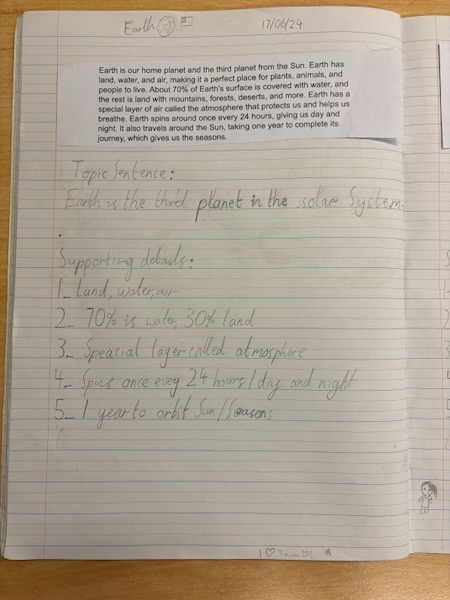 Earth 17/06/24
Earth is our home planet and the third planet from the Sun. Earth has
land, water, and air, making it a perfect place for plants, animals, and
people to live. About 70% of Earth's surface is covered with water, and
the rest is land with mountains, forests, deserts, and more. Earth has a
special layer of air called the atmosphere that protects us and helps us
breathe. Earth spins around once every 24 hours, giving us day and
night. It also travels around the Sun, taking one year to complete its
journey, which gives us the seasons.
Topic Sentence:
Earth is the third planet in the solar System.
Supporting details:
1_ Land, water, air
2_ 70% is water, 30% land
3_ Speacial layer called atmosphere
4_ Spins once evey 24 hours/day and night
5_ 1 year to orbit Sun/Seasons
I ♡